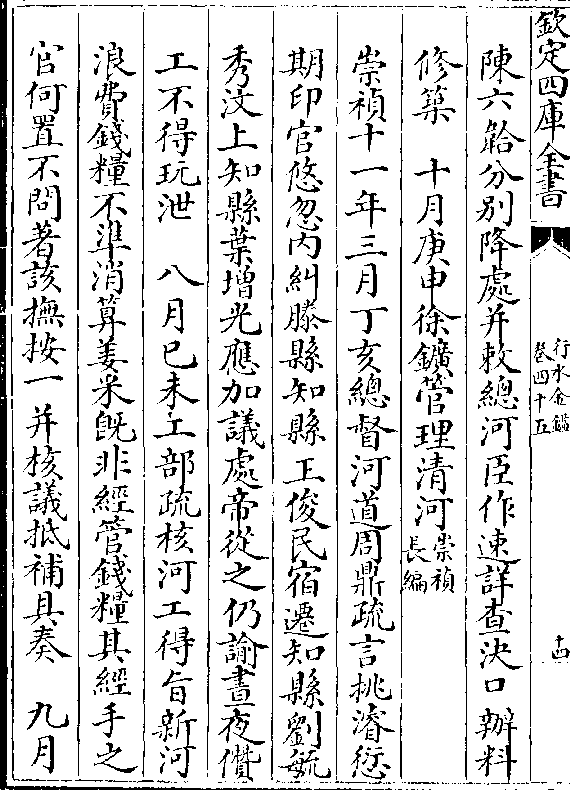 欽定四庫全書
行水金鑑
卷四十五
十四
陳六韐分別降處并敕總河臣作速詳查決口辦料
修築　十月庚申徐鑛管理清河崇禎長編
崇禎十一年三月丁亥總督河道周鼎疏言挑濬愆
期印官悠忽内糾滕縣知縣王俊民宿遷知縣劉毓
秀汶上知縣葉增光應加議處帝從之仍諭晝夜儧
工不得玩泄　八月已未工部疏核河工得旨新河
浪費錢糧不準消算姜米既非經管錢糧其經手之
官何置不問著該撫按一并核議抵補具奏　九月